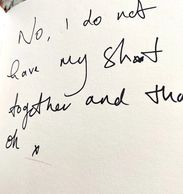 No, I do not
have my shit
together and tha
oh x